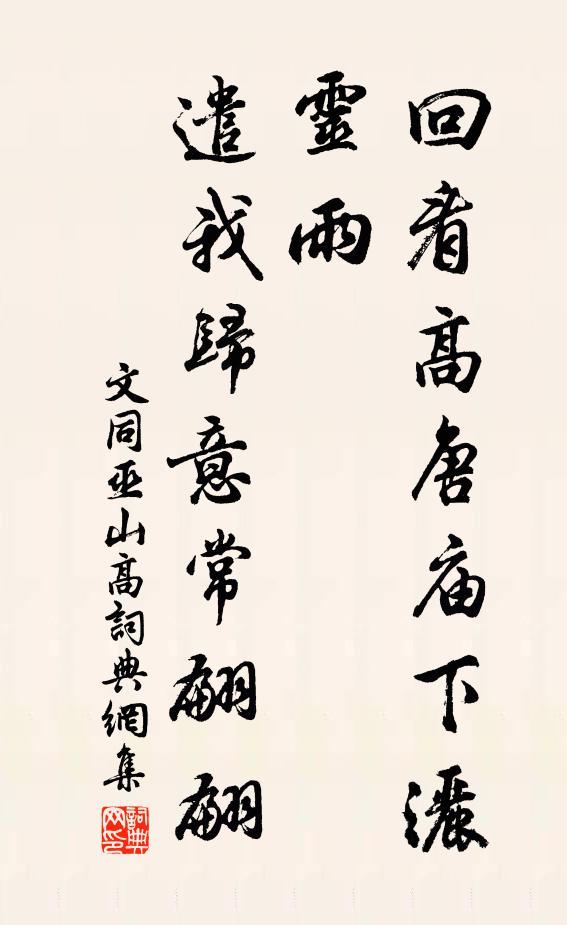 回看高唐廟下灑
靈雨
遣我歸意常翩翩
文同巫山高詞典網集
詞典網印